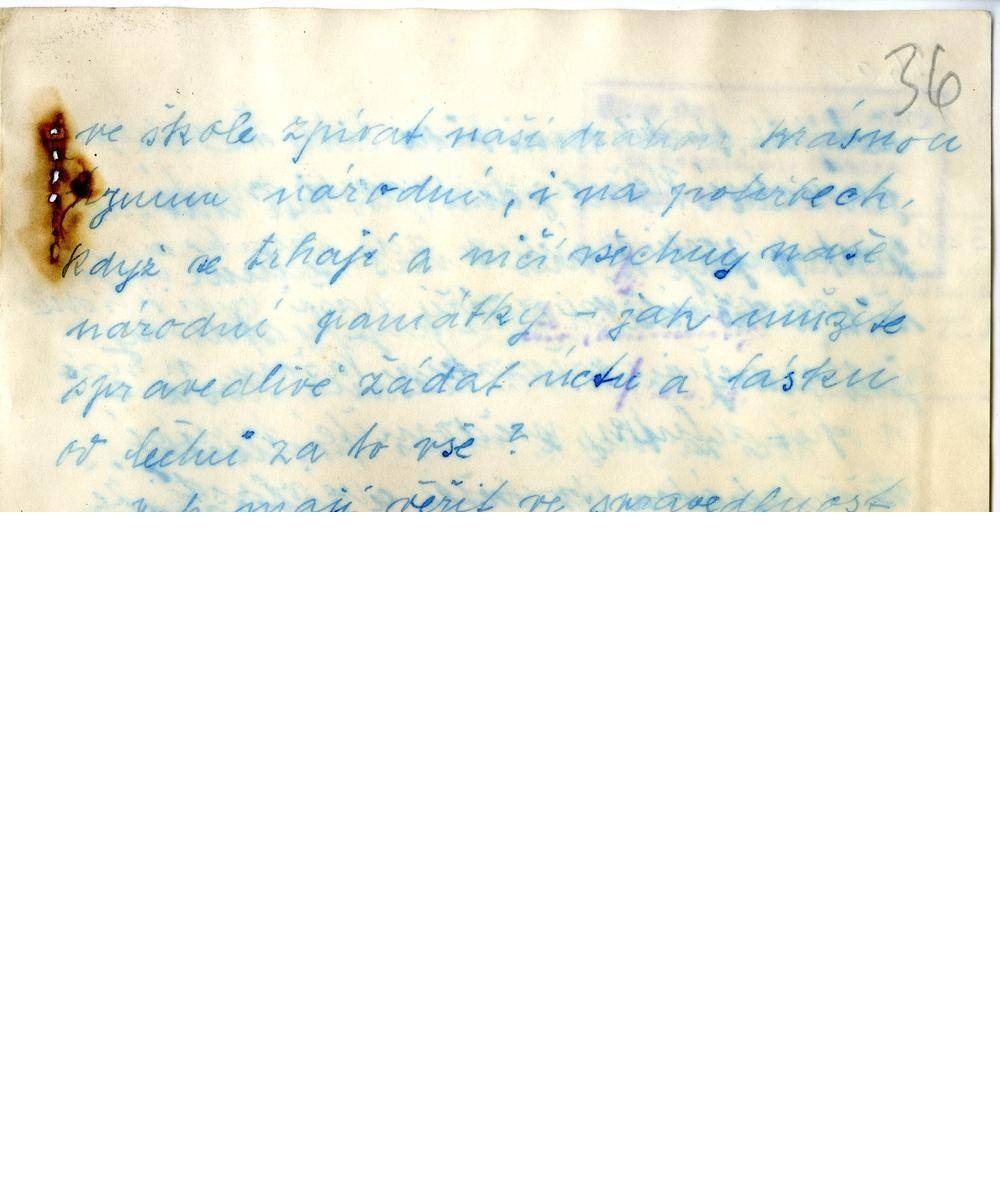 36
ve škole zpívat naši drahou krásnou
hymnu národní, i na pohřbech,
když se trhají a ničí všechny naše
národní památky – jak můžete
spravedlivě žádat úctu a lásku
od lechů za to vše?
mají věřit ve spravedlnost